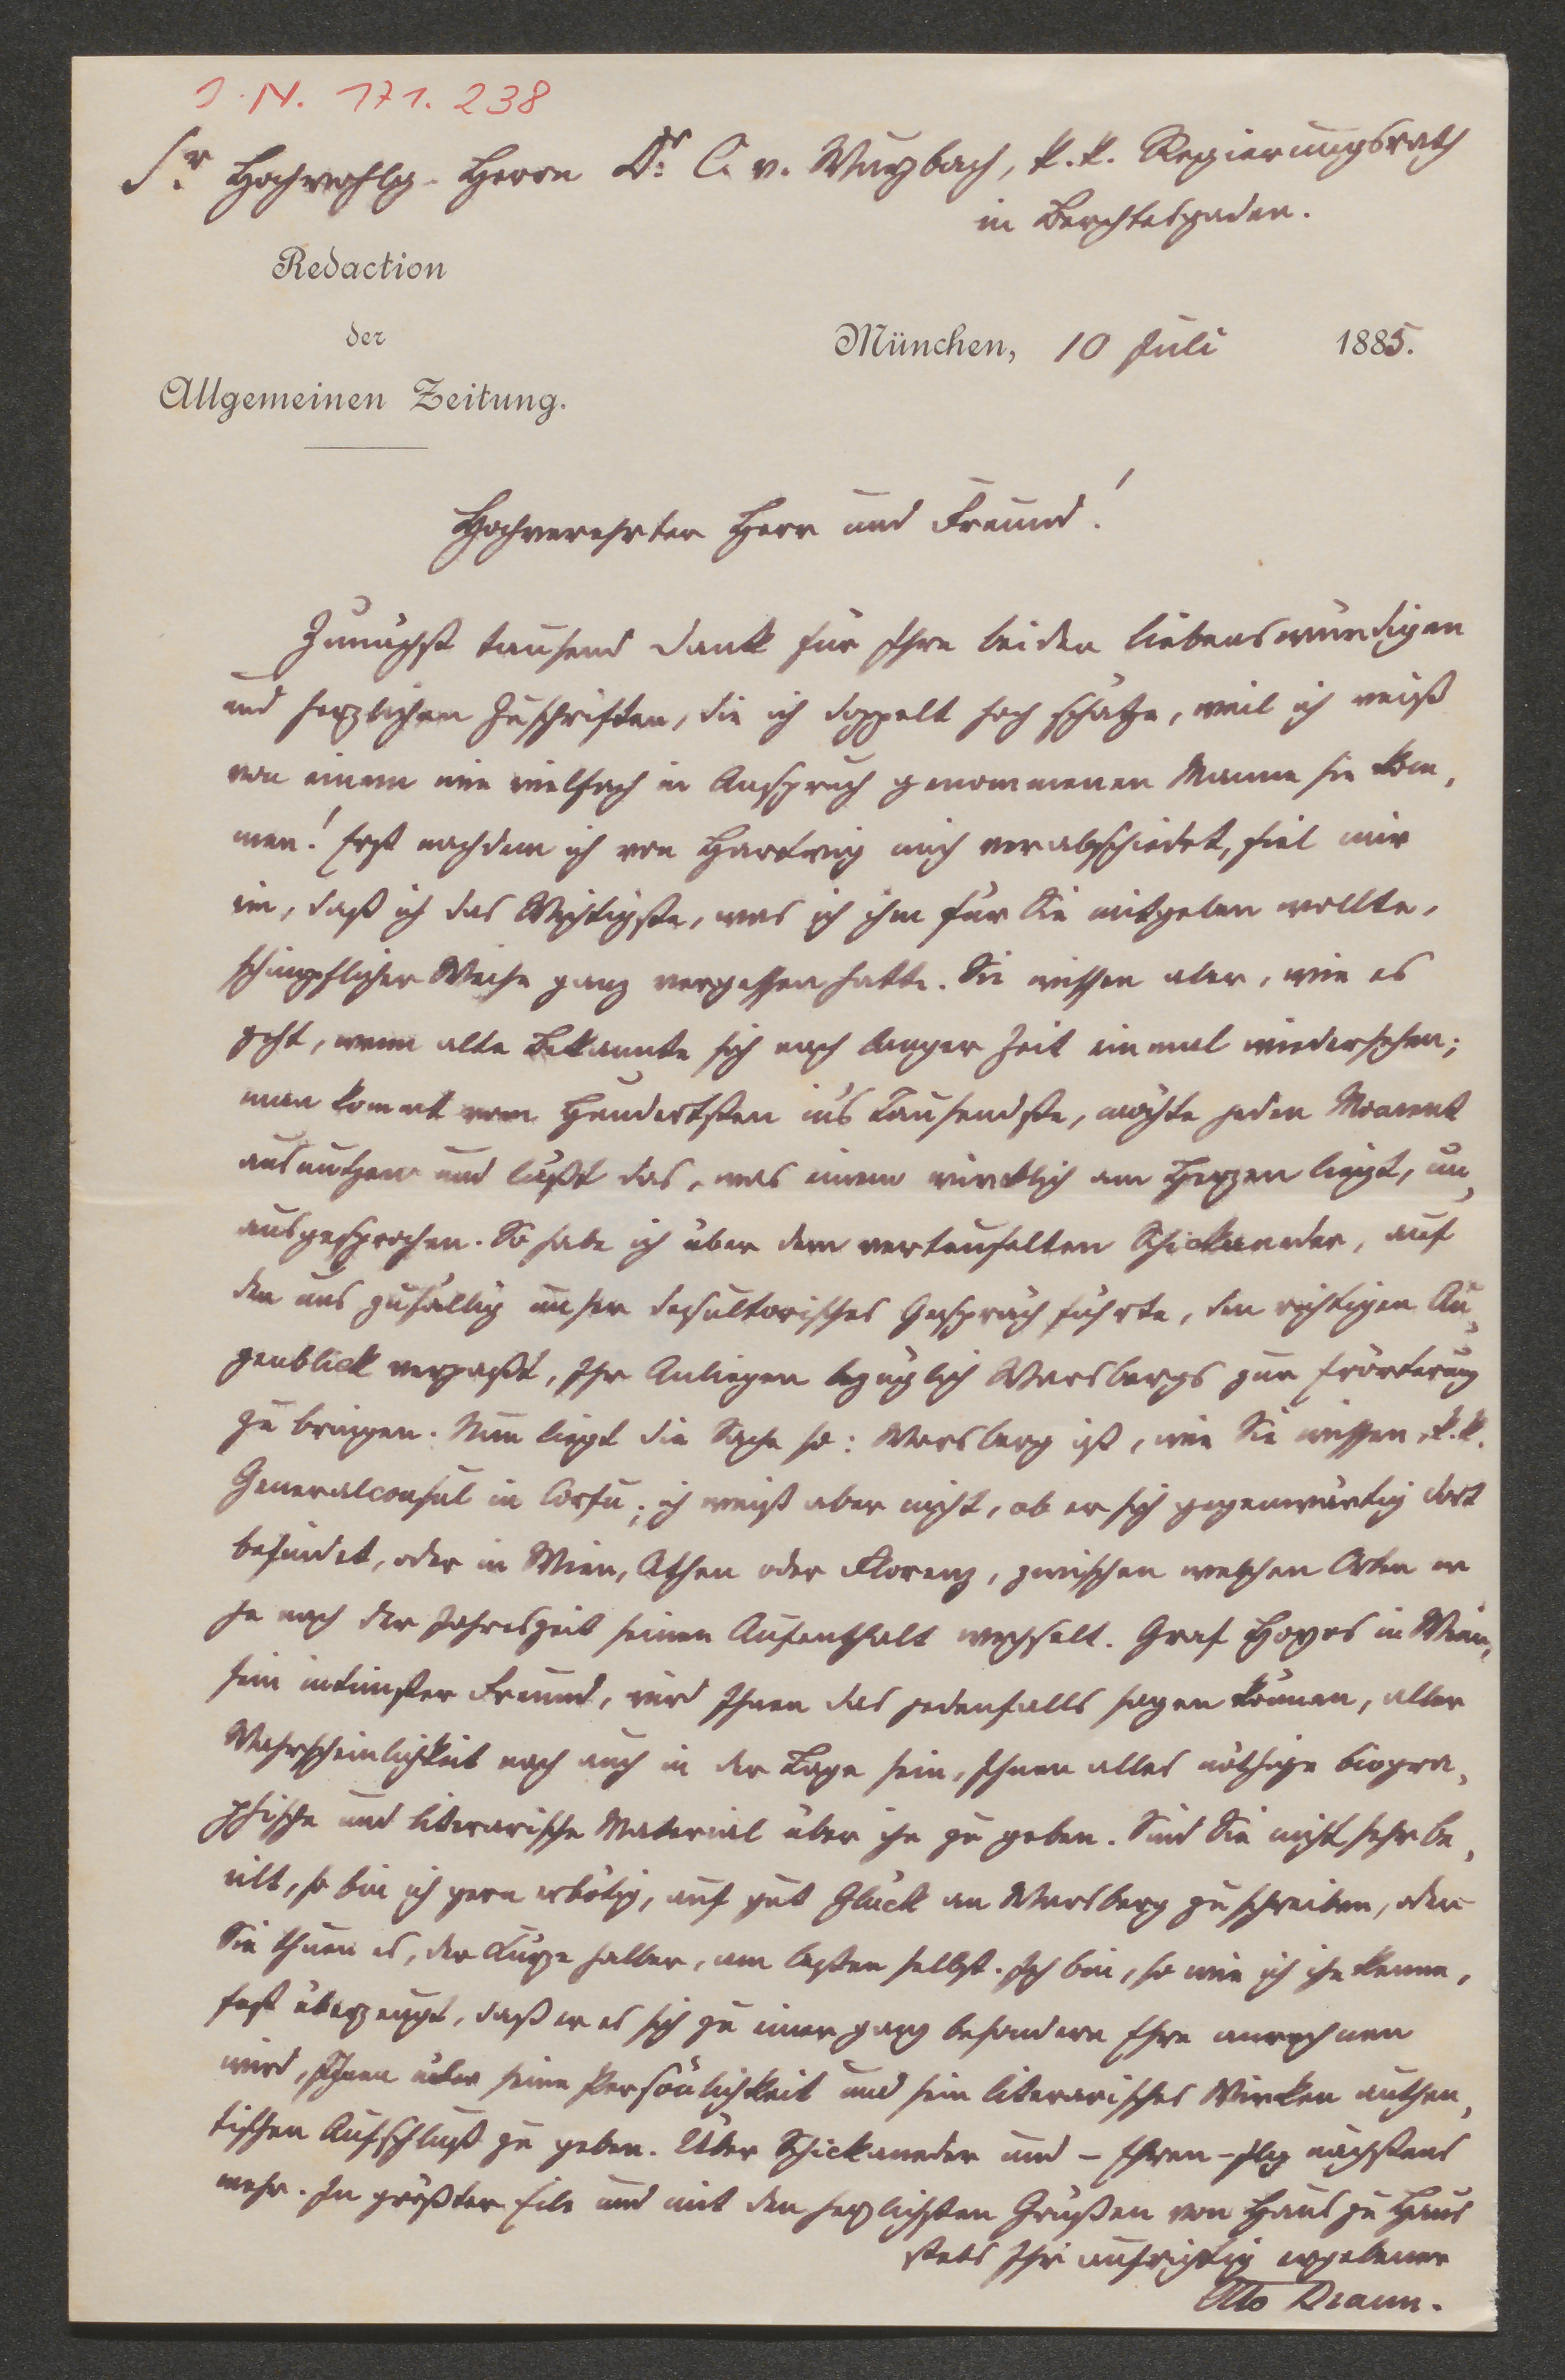 J. N. 171.238
Sr Hochwohlg. Herrn Dr. C. v. Wurzbach, k. k. Regierungsrath
in Berchtesgaden.
Redaction
der
Allgemeinen Zeitung.
München, 10 Juli 1885.
Hochverehrter Herr und Freund!
Zunächst tausend Dank für Ihre beiden liebenswürdigen
und herzlichen Zuschriften, die ich doppelt hoch schätze, weil ich weiß
von einem wie vielfach in Anspruch genommenen Manne sie kom„
men! Erst nachdem ich von Hardwig mich verabschiedet, fiel mir
ein, daß ich das Wichtigste, was ich ihm für Sie mitgeben wollte,
schimpflicher Weise ganz vergessen hatte. Sie wissen aber, wie es
geht, wenn alte Bekannte sich nach langer Zeit einmal wiedersehen;
man kommt vom Hundertsten in's Tausendste, möchte jeden Moment
ausnutzen und läßt das, was einem wirklich am Herzen liegt, un„
ausgesprochen. So habe ich über dem verteufelten Schickaneder, auf
den uns zufällig unser desultorisches Gespräch führte, den richtigen Au„
genblick verpaßt, Ihr Anliegen bezüglich Warsbergs zur Erörterung
zu bringen. Nun liegt die Sache so: Warsberg ist, wie Sie wissen, k. k.
Generalconsul in Corfu; ich weiß aber nicht, ob er sich gegenwärtig dort
befindet, oder in Wien, Athen oder Florenz, zwischen welchen Orten er
je nach der Jahreszeit seinen Aufenthalt wechselt. Graf Hoyos in Wien,
sein intimster Freund, wird Ihnen das jedenfalls sagen können, aller
Wahrscheinlichkeit nach auch in der Lage sein, Ihnen alles nöthige biogra„
phische und literarische Material über ihn zu geben. Sind Sie nicht sehr be„
eilt, so bin ich gern erbötig, auf gut Glück an Warsberg zu schreiben, oder
Sie thuen es, der Kürze halber, am besten selbst. Ich bin, so wie ich ihn kenne,
fest überzeugt, daß er es sich zu einer ganz besonderen Ehre anrechnen
wird, Ihnen über seine Persönlichkeit und sein literarisches Wirken authen„
tischen Aufschluß zu geben. Über Schickaneder und – nächstens
mehr. In größter Eile und mit den herzlichsten Grüßen von Haus zu Haus
stets Ihr aufrichtig ergebener
Otto Braun.